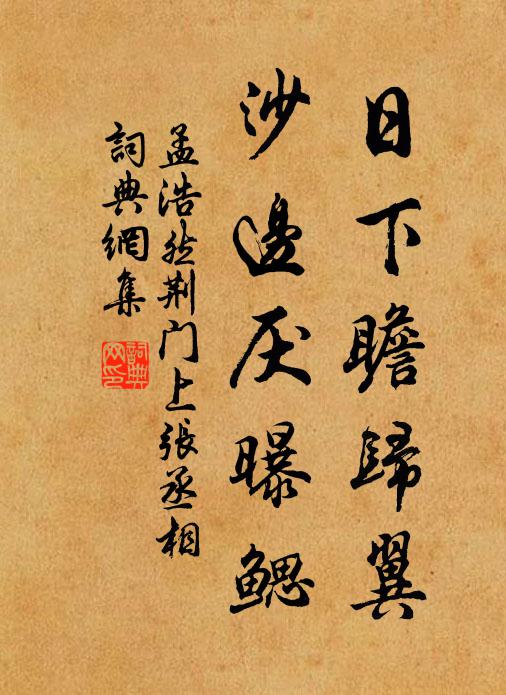 日下瞻歸翼
沙邊厌曝鳃
孟浩然荆门上張丞相
詞典網集
詞典网印